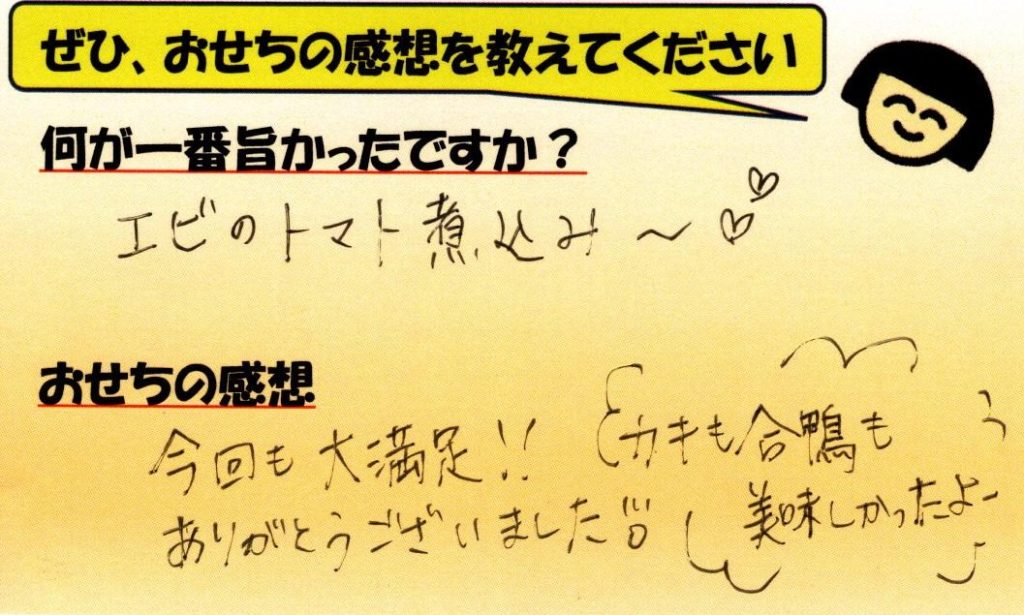 ぜひ、おせちの感想を教えてください
何が一番旨かったですか？
エビのトマト煮込み〜♡♡
おせちの感想
今回も大満足!!
ありがとうございました!!
カキも合鴨も
美味しかったよー